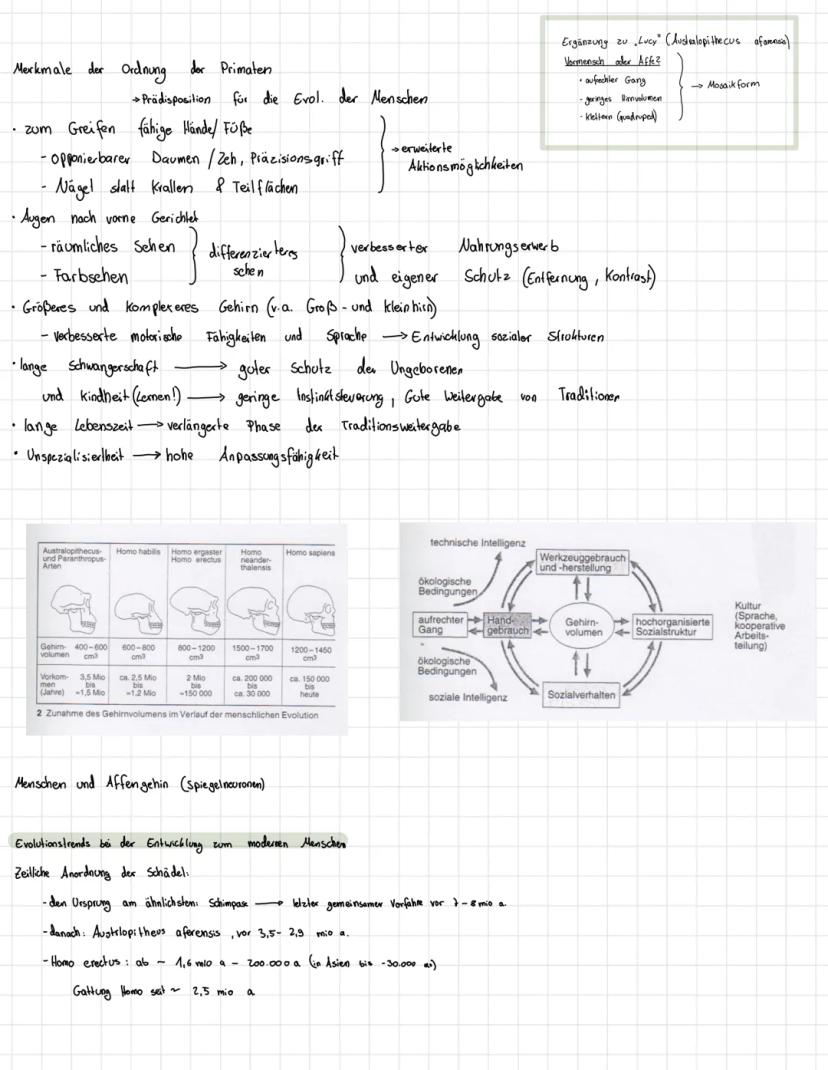 Merkmale der Ordnung der Primaten
→ Prädisposition für die Evol. der Menschen
Ergänzung zu "Lucy" (Australopithecus aferensis)
Vormensch oder Affe?
• aufrechter Gang
- geringes Hirnvolumen
- klettern (quadruped)
→ Mosaikform
• zum Greifen fähige Hände/Füße
- opponierbarer Daumen/Zeh, Präzisionsgriff
- Nägel statt Krallen & Teilflächen
→ erweiterte
Aktionsmöglichkeiten
• Augen nach vorne Gerichtet
- räumliches Sehen
- Farbsehen
differenzierteres
sehen
verbesserter Nahrungserwerb
und eigener Schutz (Entfernung, Kontrast)
• Größeres und komplexeres Gehirn (v.a. Groß- und kleinhirn)
- verbesserte motorische Fähigkeiten und Sprache → Entwicklung sozialer Strukturen
• lange Schwangerschaft → guter Schutz des Ungeborenen
und kindheit (Lernen!) → geringe Instinktsteuerung, Gute Weitergabe von Traditionen
• lange Lebenszeit → verlängerte Phase der Traditionsweitergabe
• Unspezialisiertheit → hohe Anpassungsfähigkeit
Australopithecus- und Paranthropus-Arten
Homo habilis
Homo ergaster Homo erectus
Homo neander-thalensis
Homo sapiens
Gehirn-volumen 400–600 cm³ 600–800 cm³ 800–1200 cm³ 1500–1700 cm³ 1200–1450 cm³
Vorkom-men (Jahre) 3,5 Mio bis ≈1,5 Mio ca. 2,5 Mio bis ≈1,2 Mio 2 Mio bis ≈150 000 ca. 200 000 bis ca. 30 000 ca. 150 000 bis heute
2 Zunahme des Gehirnvolumens im Verlauf der menschlichen Evolution
technische Intelligenz
Werkzeuggebrauch
und -herstellung
ökologische
Bedingungen
aufrechter
Gang
Hand-
gebrauch
Gehirn-
volumen
hochorganisierte
Sozialstruktur
Kultur
(Sprache,
kooperative
Arbeits-
teilung)
ökologische
Bedingungen
soziale Intelligenz
Sozialverhalten
Menschen und Affengehin (Spiegelneuronen)
Evolutionstrends bei der Entwicklung zum modernen Menschen
Zeitliche Anordnung der Schädel:
- den Ursprung am ähnlichsten: Schimpase → letzter gemeinsamer Vorfahre vor 7-8 mio a.
- danach: Austrlopitheus aferensis, vor 3,5- 2,9 mio a.
- Homo erectus: ab ~ 1,6 mio a - 200.000 a (in Asien bis -30.000
Gattung Homo seit ~ 2,5 mio a